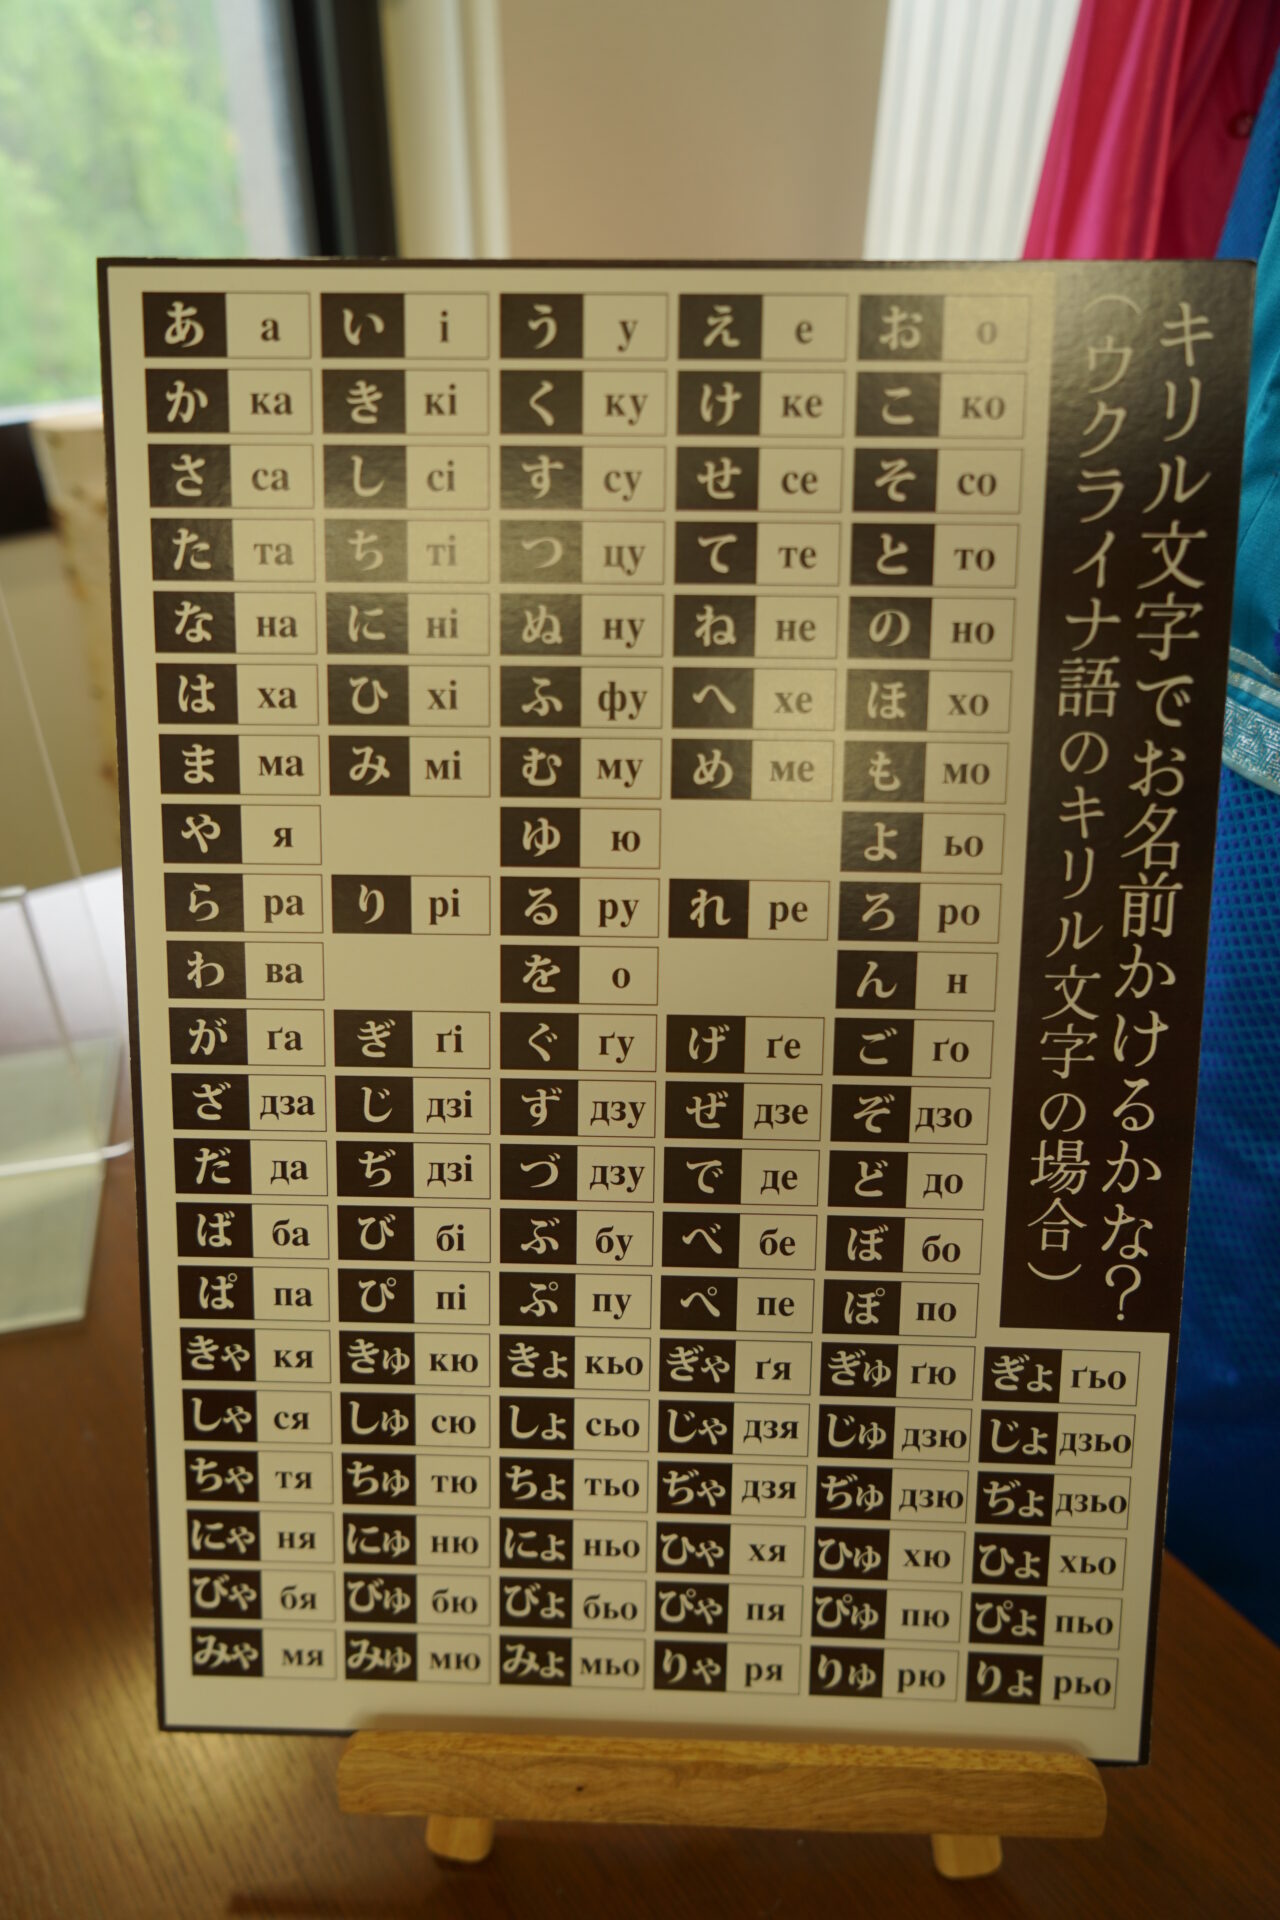 キリル文字でお名前かけるかな?
(ウクライナ語のキリル文字の場合)
あ а い і う у え е お о
か ка き кі く ку け ке こ ко
さ са し сі す су せ се そ со
た та ち ті つ цу て те と то
な на に ні ぬ ну ね не の но
は ха ひ хі ふ фу へ хе ほ хо
ま ма み мі む му め ме も мо
や я ゆ ю よ ьо
ら ра り рі る ру れ ре ろ ро
わ ва を о ん н
が ґа ぎ ґі ぐ ґу げ ґе ご ґо
ざ дза じ дзі ず дзу ぜ дзе ぞ дзо
だ да ぢ дзі づ дзу で де ど до
ば ба び бі ぶ бу べ бе ぼ бо
ぱ па ぴ пі ぷ пу ぺ пе ぽ по
きゃ кя きゅ кю きょ кьо ぎゃ ґя ぎゅ ґю ぎょ ґьо
しゃ ся しゅ сю しょ сьо じゃ дзя じゅ дзю じょ дзьо
ちゃ тя ちゅ тю ちょ тьо ぢゃ дзя ぢゅ дзю ぢょ дзьо
にゃ ня にゅ ню にょ ньо ひゃ хя ひゅ хю ひょ хьо
びゃ бя びゅ бю びょ бьо ぴゃ пя ぴゅ пю ぴょ пьо
みゃ мя みゅ мю みょ мьо りゃ ря りゅ рю りょ рьо